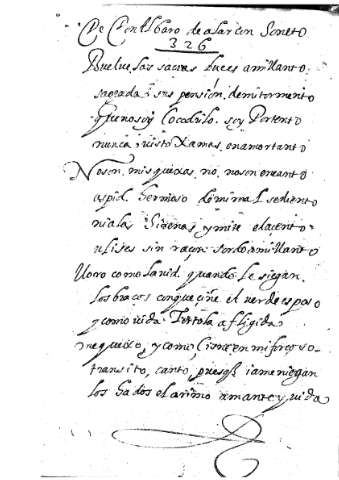 De Don Albaro de alarcon Soneto
326
Buelue las sacras luces a mi llanto
sagrada i sus pension de mi tormento
que no soy Cocodrilo. soy Portento
nunca uisto Xamas. en amor tanto
No son. mis quexas. no, no son encanto
aspid. hermoso de mi mal sediento
ni a las Sirenas y mire el acento
ulises sin raçon sordo a mi llanto
lloro como la uid. quando le siegan.
los braços con que çiñe el uerde esposo
y como uida Tortola afligida
me quexo, y como Cisne en mi forçoso
transito, canto, pues q̃ ia me niegan
los hados el animo amante y uida